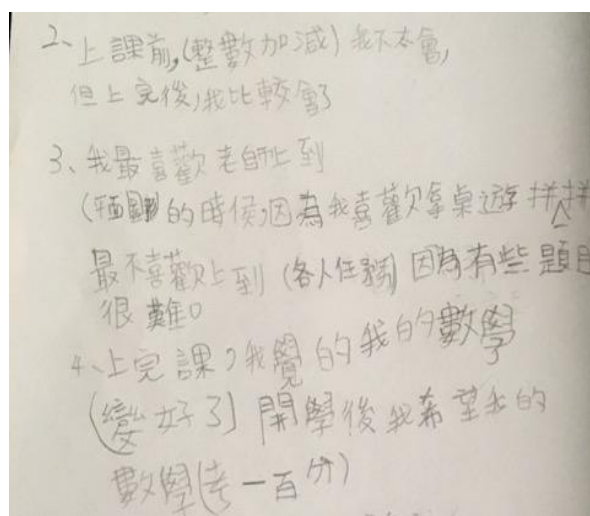 2、上課前,(整數加減)我不太會,
但上完後,我比較會了
3、我最喜歡老師上到
(平面圖形)的時侯,因為我喜歡拿桌遊拼拼
最不喜歡上到(各人任務)因為有些題目
很難。
4、上完課,我覺的我的數學
(變好了)開學後我希望我的
數學(考一百分)